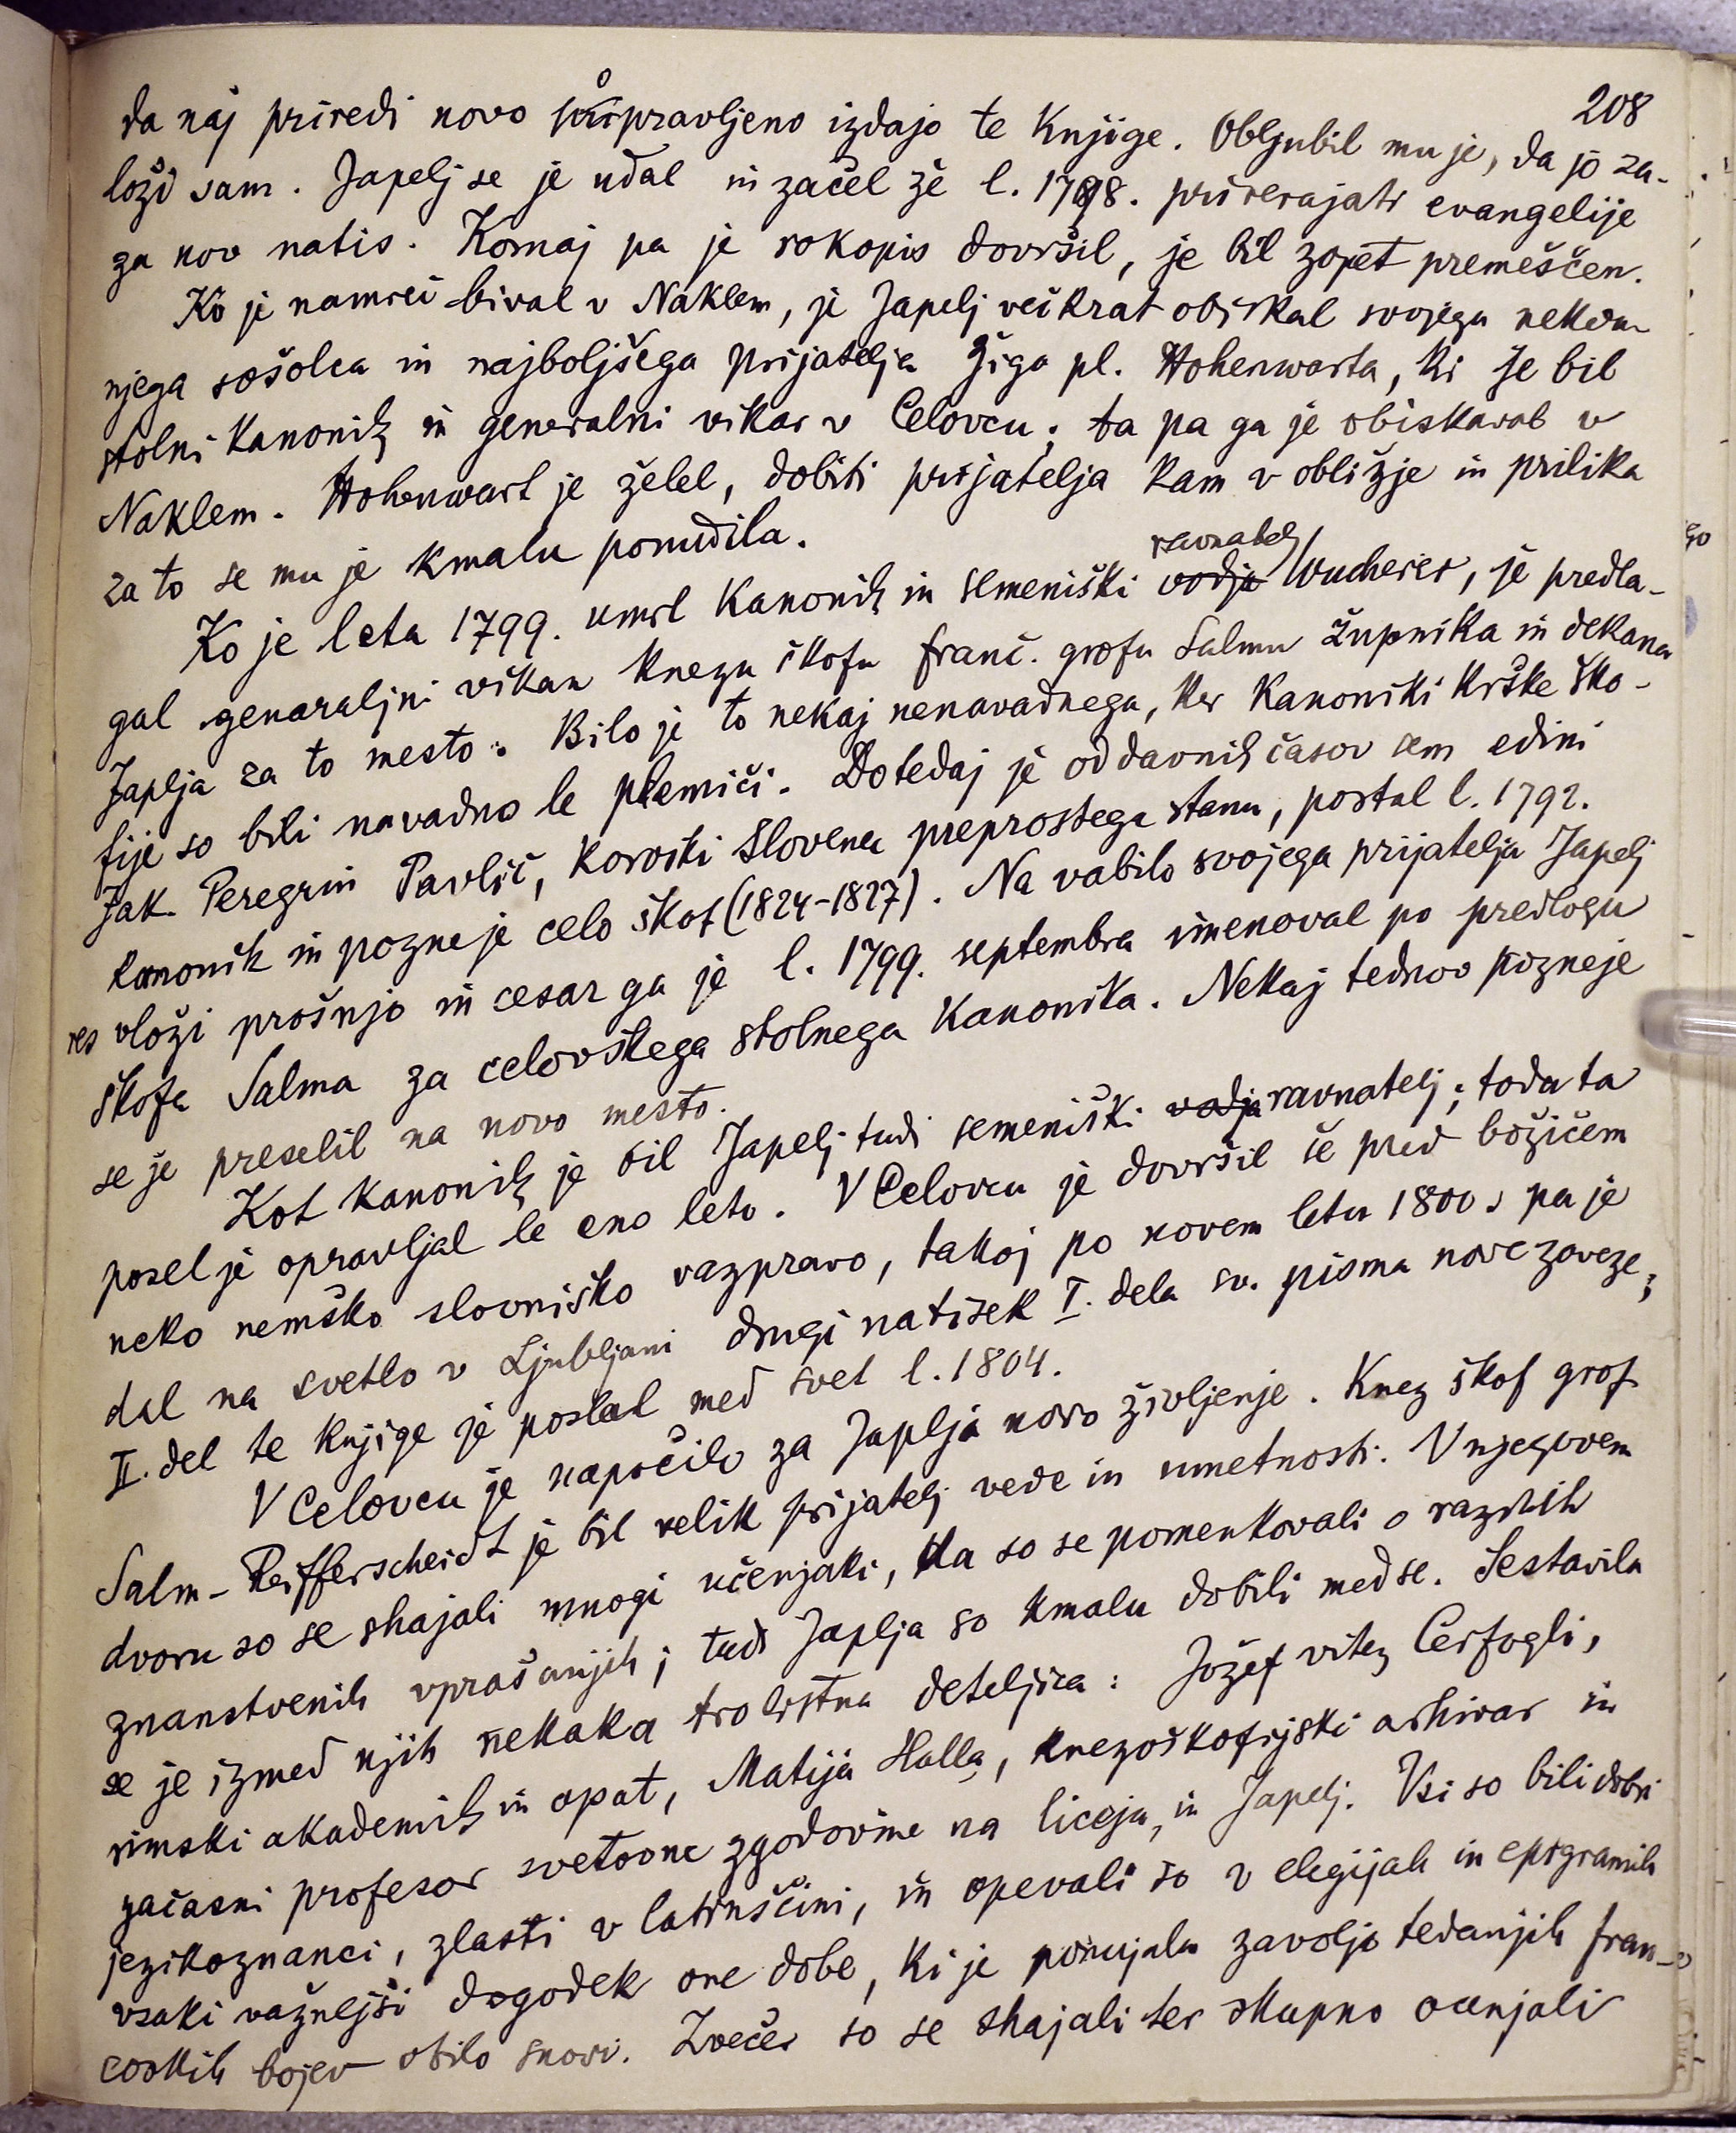 208
da naj priredi novo popravljeno izdajo te knjige. Obljubil mu je, da jo za-
loži sam. Japelj se je udal in začel že l. 1798. prirerajati evangelije
za nov natis. Komaj pa je rokopis dovršil, je bil zopet premeščen.
Ko je namreč bival v Naklem, je Japelj večkrat obiskal svojega nekda-
njega sošolca in najboljšega prijatelja Žiga pl. Hohenwarta, ki je bil
stolni kanonik in generalni vikar v Celovcu; ta pa ga je obiskaval v
Naklem. Hohenwart je želel, dobiti prijatelja kam v obližje in prilika
za to se mu je kmalu ponudila.
Ko je leta 1799. umrl kanonik in semeniški vodja ravnatelj Wucherer, je predla-
gal genaraljni vikar knezu škofu Franč. grofu Salmu župnika in dekana
Japlja za to mesto. Bilo je to nekaj nenavadnega, ker kanoniki krške ško-
fije so bili navadno le plemiči. Dotedaj je od davnih časov sem edini
Jak. Peregrin Pavlič, koroški Slovenec preprostega stanu, postal l. 1792.
kanonik in pozneje celo škof (1824-1827). Na vabilo svojega prijatelja Japelj
res vloži prošnjo in cesar ga je l. 1799. septembra imenoval po predlogu
škofa Salma za celovškega stolnega kanonika. Nekaj tednov pozneje
se je preselil na novo mesto.
Kot kanonik je bil Japelj tudi semeniški vodja ravnatelj; toda ta
posel je opravljal le eno leto. V Celovcu je dovršil še pred božičem
neko nemško slovniško razpravo, takoj po novem letu 1800 s pa je
dal na svetlo v Ljubljani drugi natisek I. dela sv. pisma nove zaveze;
II. del te knjige je poslal med svet l. 1804.
V Celovcu je napočilo za Japlja novo življenje. Knez škof grof
Salm-Reifferscheidt je bil velik prijatelj vede in umetnosti. V njegovem
dvoru so se shajali mnogi učenjaki, da so se pomenkovali o raznih
znanstvenih vprašanjih; tudi Japlja so kmalu dobili medse. Sestavila
se je izmed njih nekaka trolistna deteljica: Jožef vitez Cerfogli,
rimski akademik in opat, Matija Halla, knezoškofijski arhivar in
začasni profesor svetovne zgodovine na liceju, in Japelj. Vsi so bili dobri
jezikoznanci, zlasti v latinščini, in opevali so v elegijah in epigramih
vsaki važnejši dogodek one dobe, ki je ponujala zavoljo tedanjih fran-
coskih bojev obilo snovi. Zvečer so se shajali ter skupno ocenjali